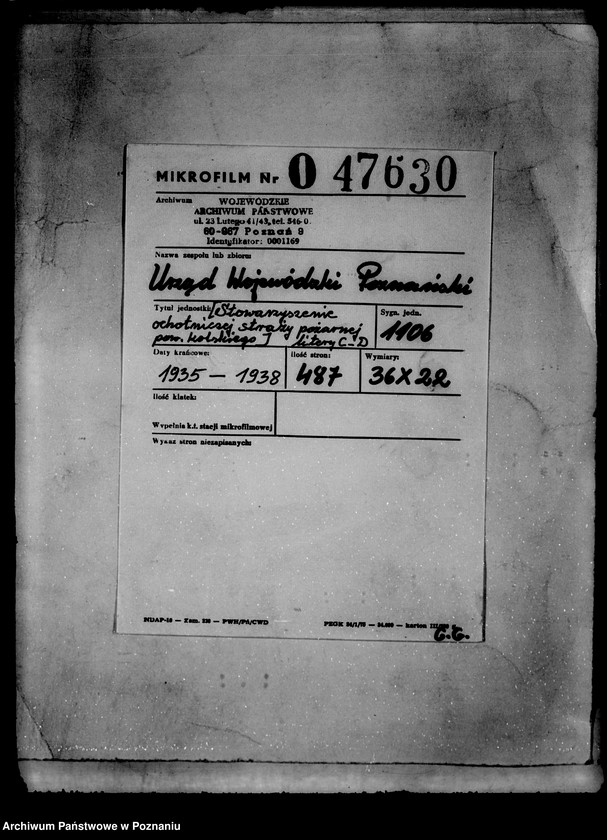 MIKROFILM Nr O 47630
Archiwum WOJEWÓDZKIE
ARCHIWUM PAŃSTWOWE
ul. 23 Lutego 41/43, tel. 546-0.
60-967 Poznań 9
Identyfikator: 0001169
Nazwa zespołu lub zbioru:
Urząd Wojewódzki Poznański
Tytuł jednostki: [Stowarzyszenie
ochotniczej straży pożarnej
pow. kolskiego] litery C-D
Sygn. jedn.
1106
Daty krańcowe:
1935 - 1938
Ilość stron:
487
Wymiary:
36X22
Ilość klatek:
Wypełnia k.t. stacji mikrofilmowej
Wykaz stron niezapisanych:
NDAP-16 — Zam. — PWH/Pd/CWD
PZGK — karton
C.C.
Archiwum Państwowe w Poznaniu